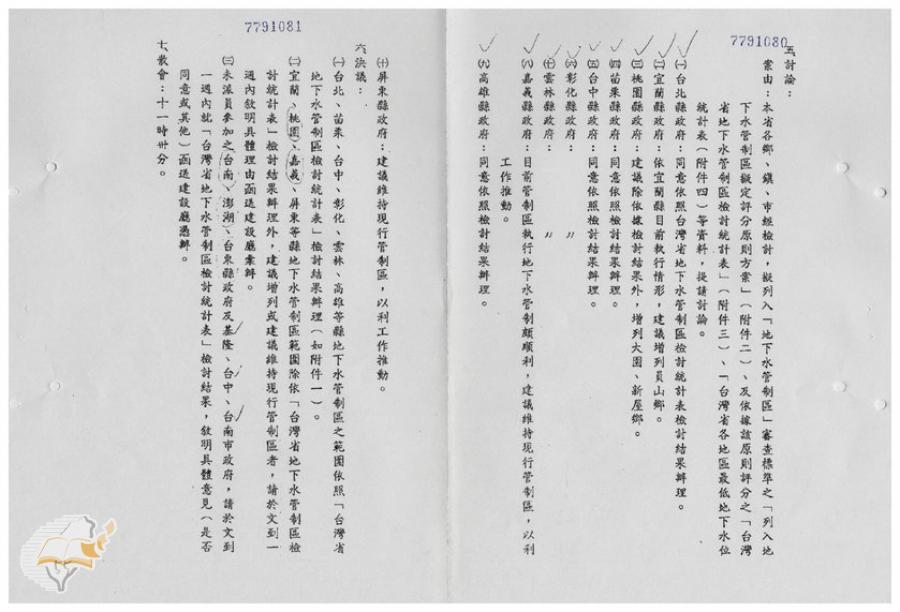 7791080
五、討論：
案由：本省各鄉、鎮、市經檢討，擬列入「地下水管制區」審查標準之「列入地
下水管制區擬定評分原則方案」（附件二）、及依據該原則評分之「台灣
省地下水管制區檢討統計表」（附件三）、「台灣省各地區最低地下水位
統計表（附件四）等資料，提請討論。
㈠台北縣政府：同意依照台灣省地下水管制區檢討統計表檢討結果辦理。
㈡宜蘭縣政府：依宜蘭縣目前執行情形，建議增列員山鄉。
㈢桃園縣政府：建議除依據檢討結果外，增列大園、新屋鄉。
㈣苗栗縣政府：同意依照檢討結果辦理。
㈤台中縣政府：同意依照檢討結果辦理。
㈥彰化縣政府： 〃
㈦雲林縣政府： 〃
㈧嘉義縣政府：目前管制區執行地下水管制頗順利，建議維持現行管制區，以利
工作推動。
㈨高雄縣政府：同意依照檢討結果辦理。
7791081
㈩屏東縣政府：建議維持現行管制區，以利工作推動。
六、決議：
㈠台北、苗栗、台中、彰化、雲林、高雄等縣地下水管制區之範圍依照「台灣省
地下水管制區檢討統計表」檢討結果辦理（如附件一）。
㈡宜蘭、桃園、嘉義、屏東等縣地下水管制區範圍除依「台灣省地下水管制區檢
討統計表」檢討結果辦理外，建議增列或建議維持現行管制區者，請於文到一
週內敘明具體理由函送建設廳彙辦。
㈢未派員參加之台南、澎湖、台東縣政府及基隆、台中、台南市政府，請於文到
一週內就「台灣省地下水管制區檢討統計表」檢討結果，敘明具體意見（是否
同意或其他）函送建設廳憑辦。
七、散會：十一時卅分。